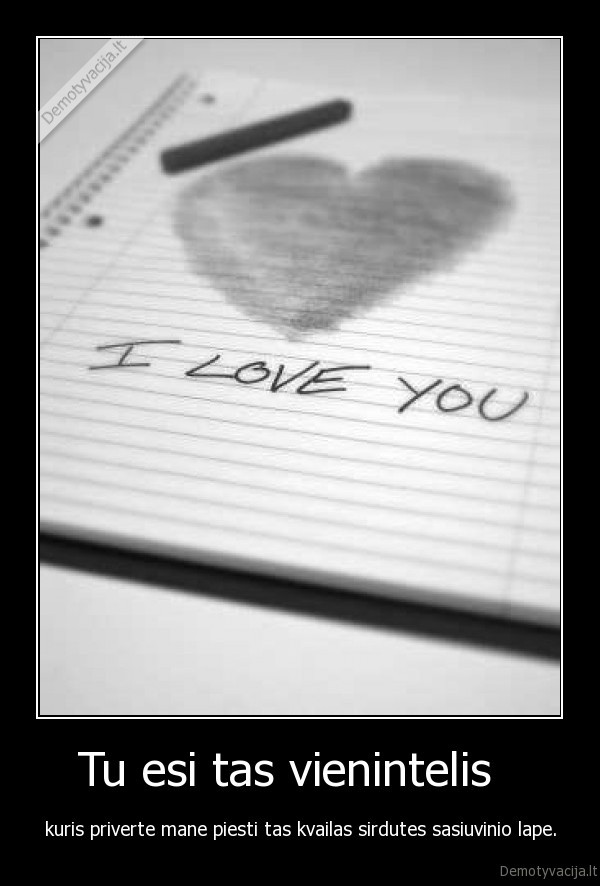 Demotyvacija.lt
I LOVE YOU
Tu esi tas vienintelis
kuris priverte mane piesti tas kvailas sirdutes sasiuvinio lape.
Demotyvacija.lt